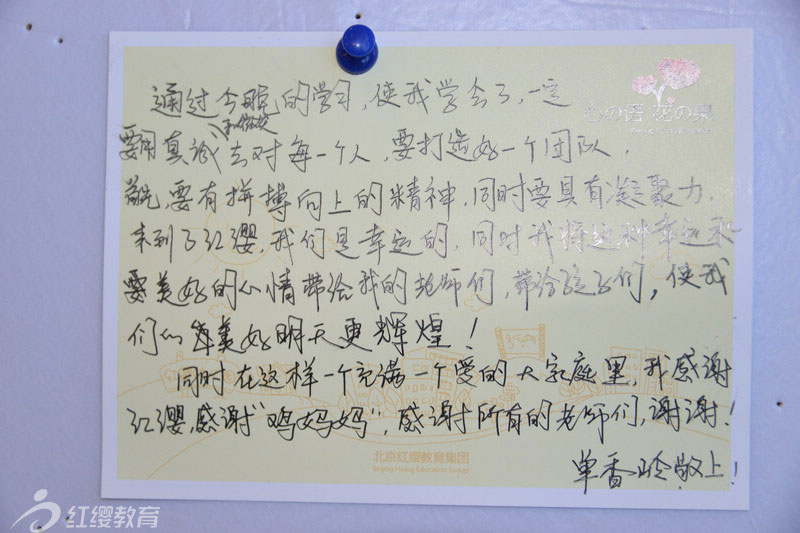 通过今晚的学习,使我学会了,一定
心の语 花の果
要用真诚去对每一个人,要打造好一个团队,
首先,要有拼搏向上的精神,同时要具有凝聚力.
来到了红缨,我们是幸运的,同时我将这种幸运和
要美好的心情带给我的老师们,带给孩子们,使我
们的美好明天更辉煌!
同时在这样一个充满一个爱的大家庭里,我感谢
红缨,感谢"鸡妈妈",感谢所有的老师们,谢谢!
北京红缨教育集团
Beijing Hoing Education Group
单香玲敬上!
红缨教育